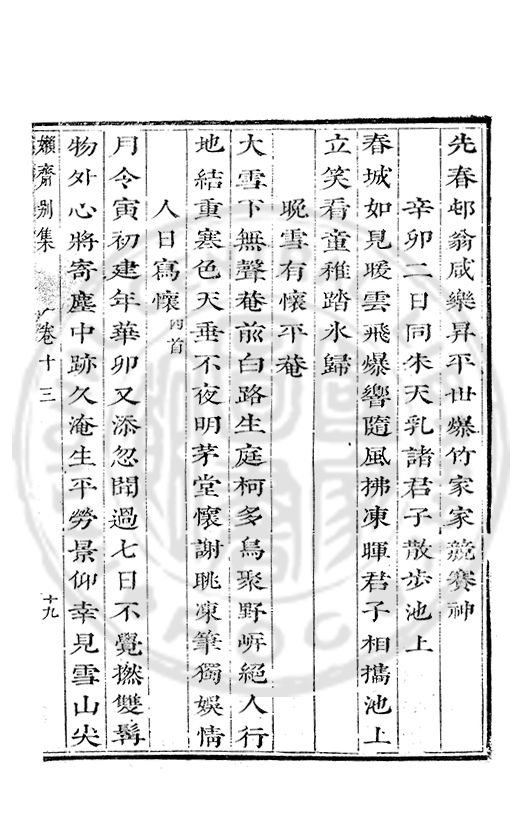 先春邨翁咸樂昇平世爆竹家家競賽神
辛卯二日同朱天乳諸君子散步池上
春城如見暖雲飛爆響隨風拂凍暉君子相攜池上
立笑看童稚踏氷歸
晚雪有懷平菴
大雪下無聲菴前白路生庭柯多鳥聚野𡵨絕人行
地結重寒色天垂不夜明茅堂懷謝朓凍筆獨娛情
人日寫懷四首
月令寅初建年華卯又添忽聞過七日不覺撚雙髯
物外心將寄塵中跡久淹生平勞景仰幸見雪山尖
嬾齋別集
卷十三
十九